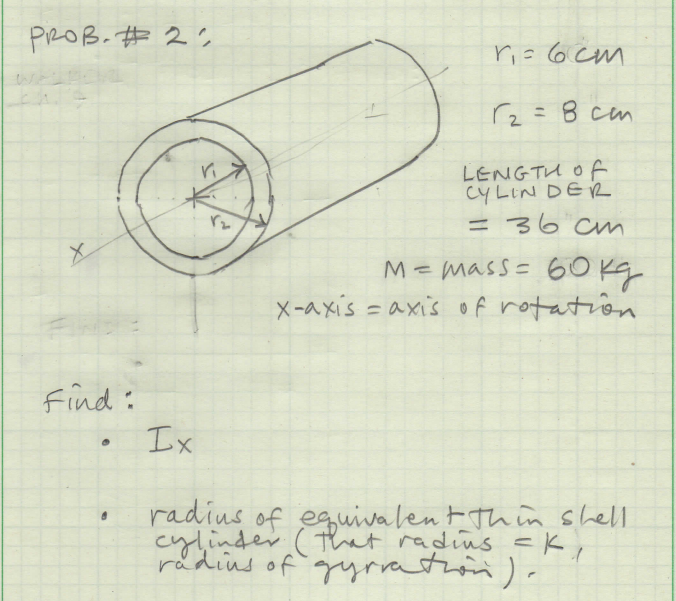 PROB. # 2:
r₁ = 6 cm
r₂ = 8 cm
LENGTH OF
CYLINDER
= 36 cm
M = mass = 60 kg
x-axis = axis of rotation
r₁
r₂
x
Find:
• Ix
• radius of equivalent thin shell
cylinder (that radius = K,
radius of gyration).